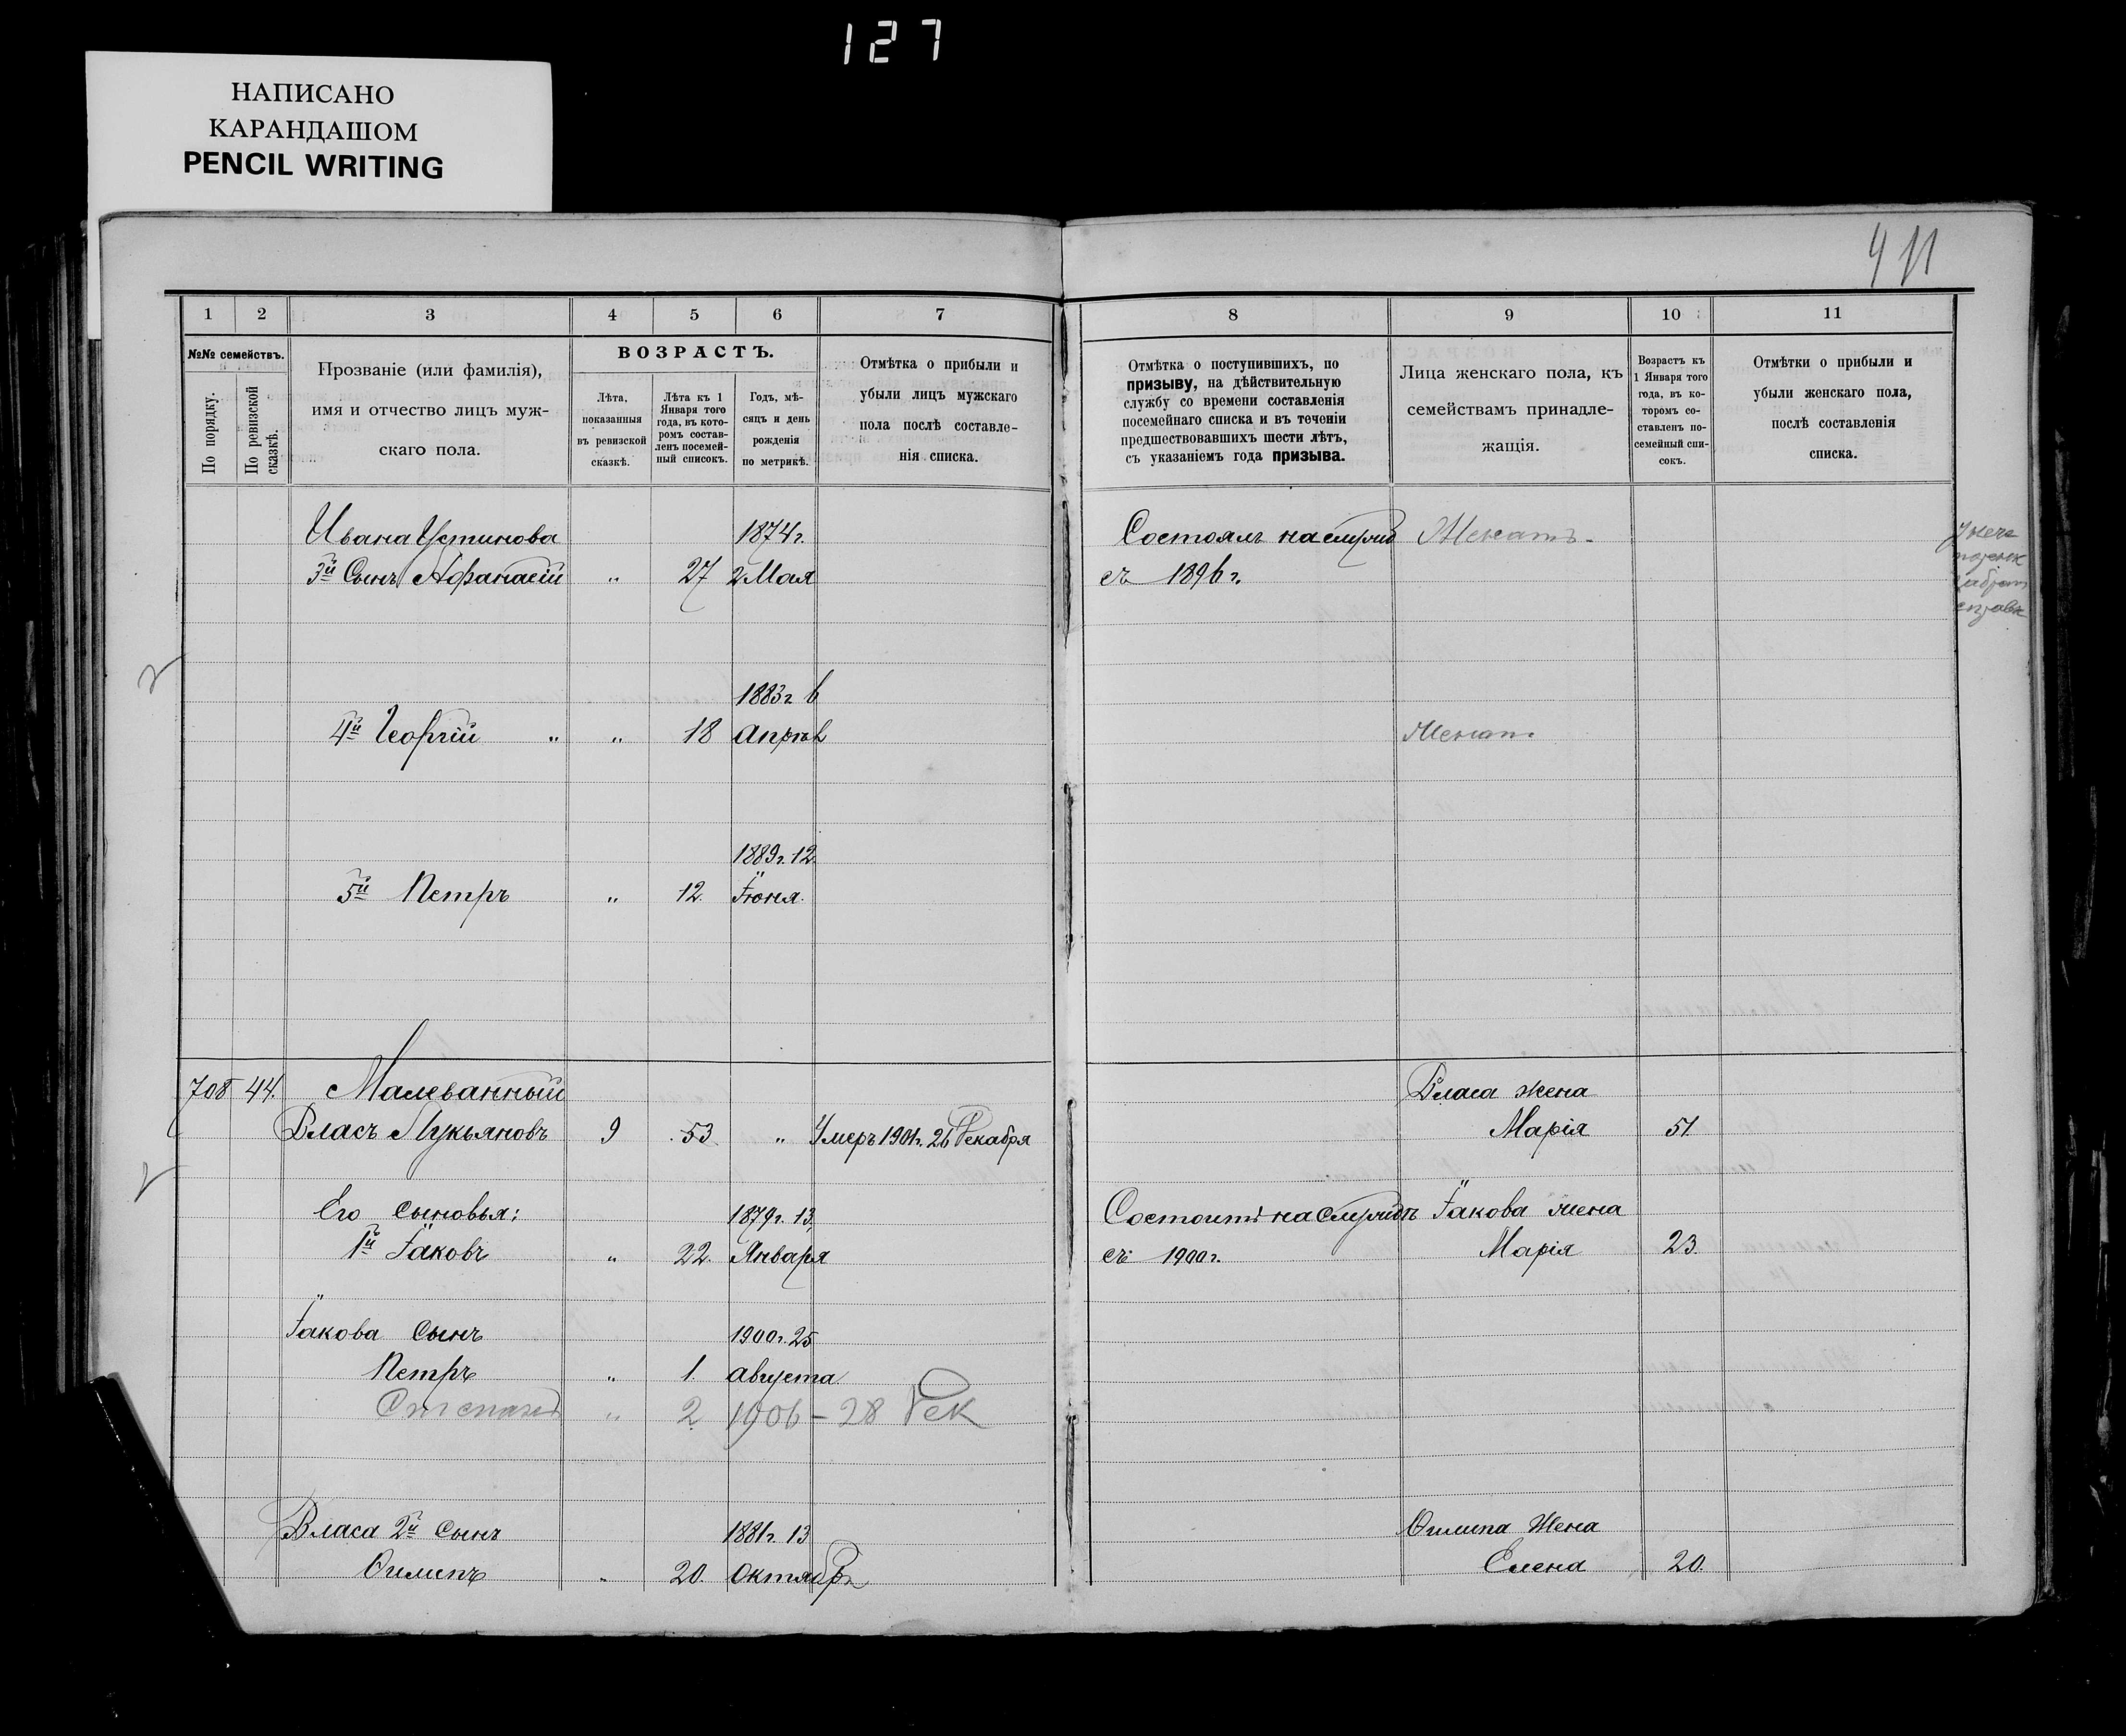 127
НАПИСАНО
КАРАНДАШОМ
PENCIL WRITING
411
1 2 3 4 5 6 7 8 9 10 11
№№ семействъ.
По порядку.
По ревизской сказкѣ.
Прозваніе (или фамилія),
имя и отчество лицъ муж-
скаго пола.
ВОЗРАСТЪ.
Лѣта,
показанныя
въ ревизской
сказкѣ.
Лѣта къ 1
Января того
года, въ кото-
ромъ состав-
ленъ посемей-
ный списокъ.
Годъ, мѣ-
сяцъ и день
рожденія
по метрикѣ.
Отмѣтка о прибыли и
убыли лицъ мужскаго
пола послѣ составле-
нія списка.
Отмѣтка о поступившихъ, по
призыву, на дѣйствительную
службу со времени составленія
посемейнаго списка и въ теченіи
предшествовавшихъ шести лѣтъ,
съ указаніемъ года призыва.
Лица женскаго пола, къ
семействамъ принадле-
жащія.
Возрастъ къ
1 Января того
года, въ ко-
торомъ со-
ставленъ по-
семейный спи-
сокъ.
Отмѣтки о прибыли и
убыли женскаго пола,
послѣ составленія
списка.
Ивана Устинова 1874 г. Состоялъ на службѣ Женатъ.
3й Сынъ Афанасій „ 27 2 Мая съ 1896 г.
1883 г. 6
4й Георгій „ „ 18 Апрѣл Женат.
1889 г. 12
5й Петръ „ 12. Іюня.
708 44. Малеванный Власа жена
Власъ Лукьяновъ 9 53 „ Умеръ 1901 г. 26 Декабря Марія 51.
Его сыновья: 1879 г. 13 Состоитъ на службѣ Іакова жена
1й Іаковъ „ 22. Января съ 1900 г. Марія 23.
Іакова Сынъ 1900 г. 25
Петръ „ 1. Августа
Степанъ „ 2 1906 – 28 Дек
Власа 2й Сынъ 1881 г. 13 Филипа Жена
Филипъ „ 20. Октября Елена 20.